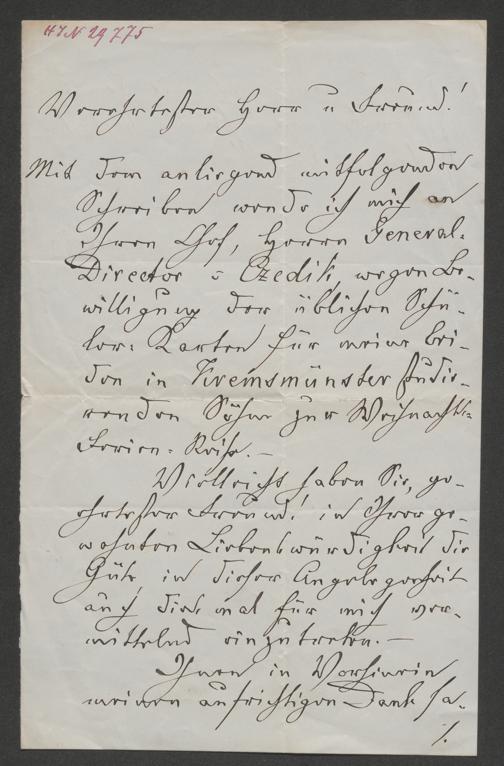 HIN 29775
Verehrtester Herr u Freund!
Mit dem anliegend mitfolgenden
Schreiben wende ich mich an
Ihren Chef, Herrn General-
Director v Czedik, wegen Be-
willigung der üblichen Schü-
ler-Karten für meine bei-
den in Kremsmünster studie-
renden Söhne zur Weihnachts-
Ferien-Reise.—
Vielleicht haben Sie, ge-
ehrtester Freund! in Ihrer ge-
wohnten Liebenswürdigkeit die
Güte in dieser Angelegenheit
auch diesmal für mich ver-
mittelnd einzutreten.—
Ihnen in Vorhinein
meinen aufrichtigen Dank sa-
/.